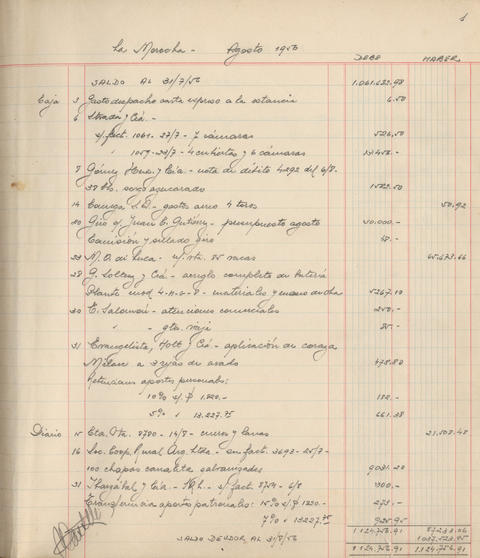 1
La Morocha - Agosto 1956
DEBE HABER
SALDO AL 31/7/56 1.061.622.98
Caja 3 Gasto despacho carta expreso a la estancia 6.50
6 Estrada y Cía. -
s/fact. 1061-27/7 - 7 cámaras 526,50
" 1059-27/7 - 4 cubiertas y 6 cámaras
7 Gómez, Hnos. y Cía. - nota de débito 4292 del 6/8-
azucarado 1522.50
14 gastos 4 toros 50.92
20 Giro o/ Juan C. Gutiérrez - presupuesto agosto 50.000.-
Comisión y sellado giro
M. O. de Luca - 25 vacas 65.673.66
28 G. y Cía - arreglo completo de batería
Plante mod. - materiales y mano de obra 5267.10
30 E. Salomón - atenciones comerciales 250.-
" - gtos. viaje 25.-
31 Evangelista, Holt y Cía - aplicación de coraza
a rejas de arado 478.80
Retenciones aportes personales:
10% s/$ 1.820.- 182.-
5% " 13.227.75 661.38
Diario 15 Cta. Vta. 8780 - 14/8 - cueros y lanas 21.508.48
16 Soc. Coop. Rural Arg. Ltda. - su fact. 3693-25/7-
100 chapas canaleta galvanizadas 9031.20
31 y Cía - SRL - s/ fact. 8754 - 6/8 300.-
Transferencia aportes patronales: 15% s/$ 1820.- 273.-
7% " 13227.75 925.95
1.124.756.91 87.233.06
SALDO DEUDOR AL 31/8/56 1.037.523.85
1.124.756.91 1.124.756.91